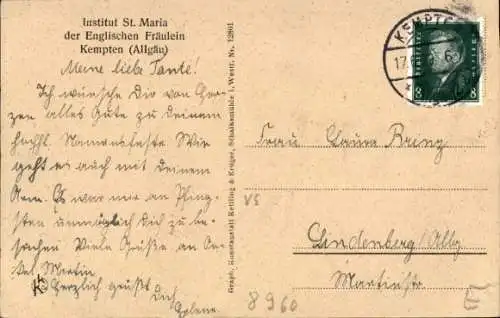 Institut St. Maria
der Englischen Fräulein
Kempten (Allgäu)
Meine liebe Tante!
Ich wünsche Dir von Her-
zen alles Gute zu deinem
Namensfeste. Wie
geht es auch mit deinem
Arm. Es war mir an Pfing-
sten unmöglich dich zu be-
suchen Viele Grüße an On-
kel Martin
Herzlich grüßt
Dich
Graph. Kunstanstalt Kettling & Krüger, Schalksmühle i. Westf. Nr. 12861
KEMPTE
17
8 8
Frau Laura Breng
Lindenberg/Allg.
Martinstr.
VS
8960